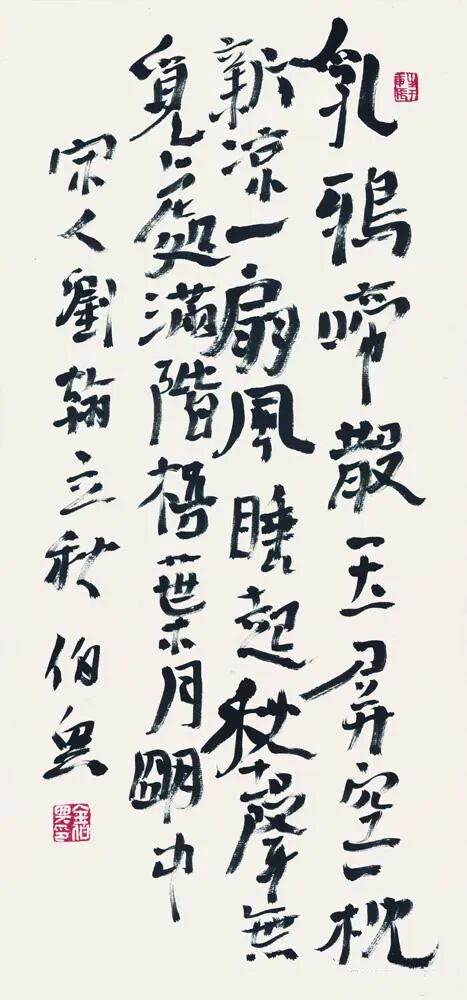 乳鴉啼散玉屏空一枕
新涼一扇風睡起秋聲無
覓處滿階梧葉月明中
宋人劉翰立秋 伯興
金伯興印